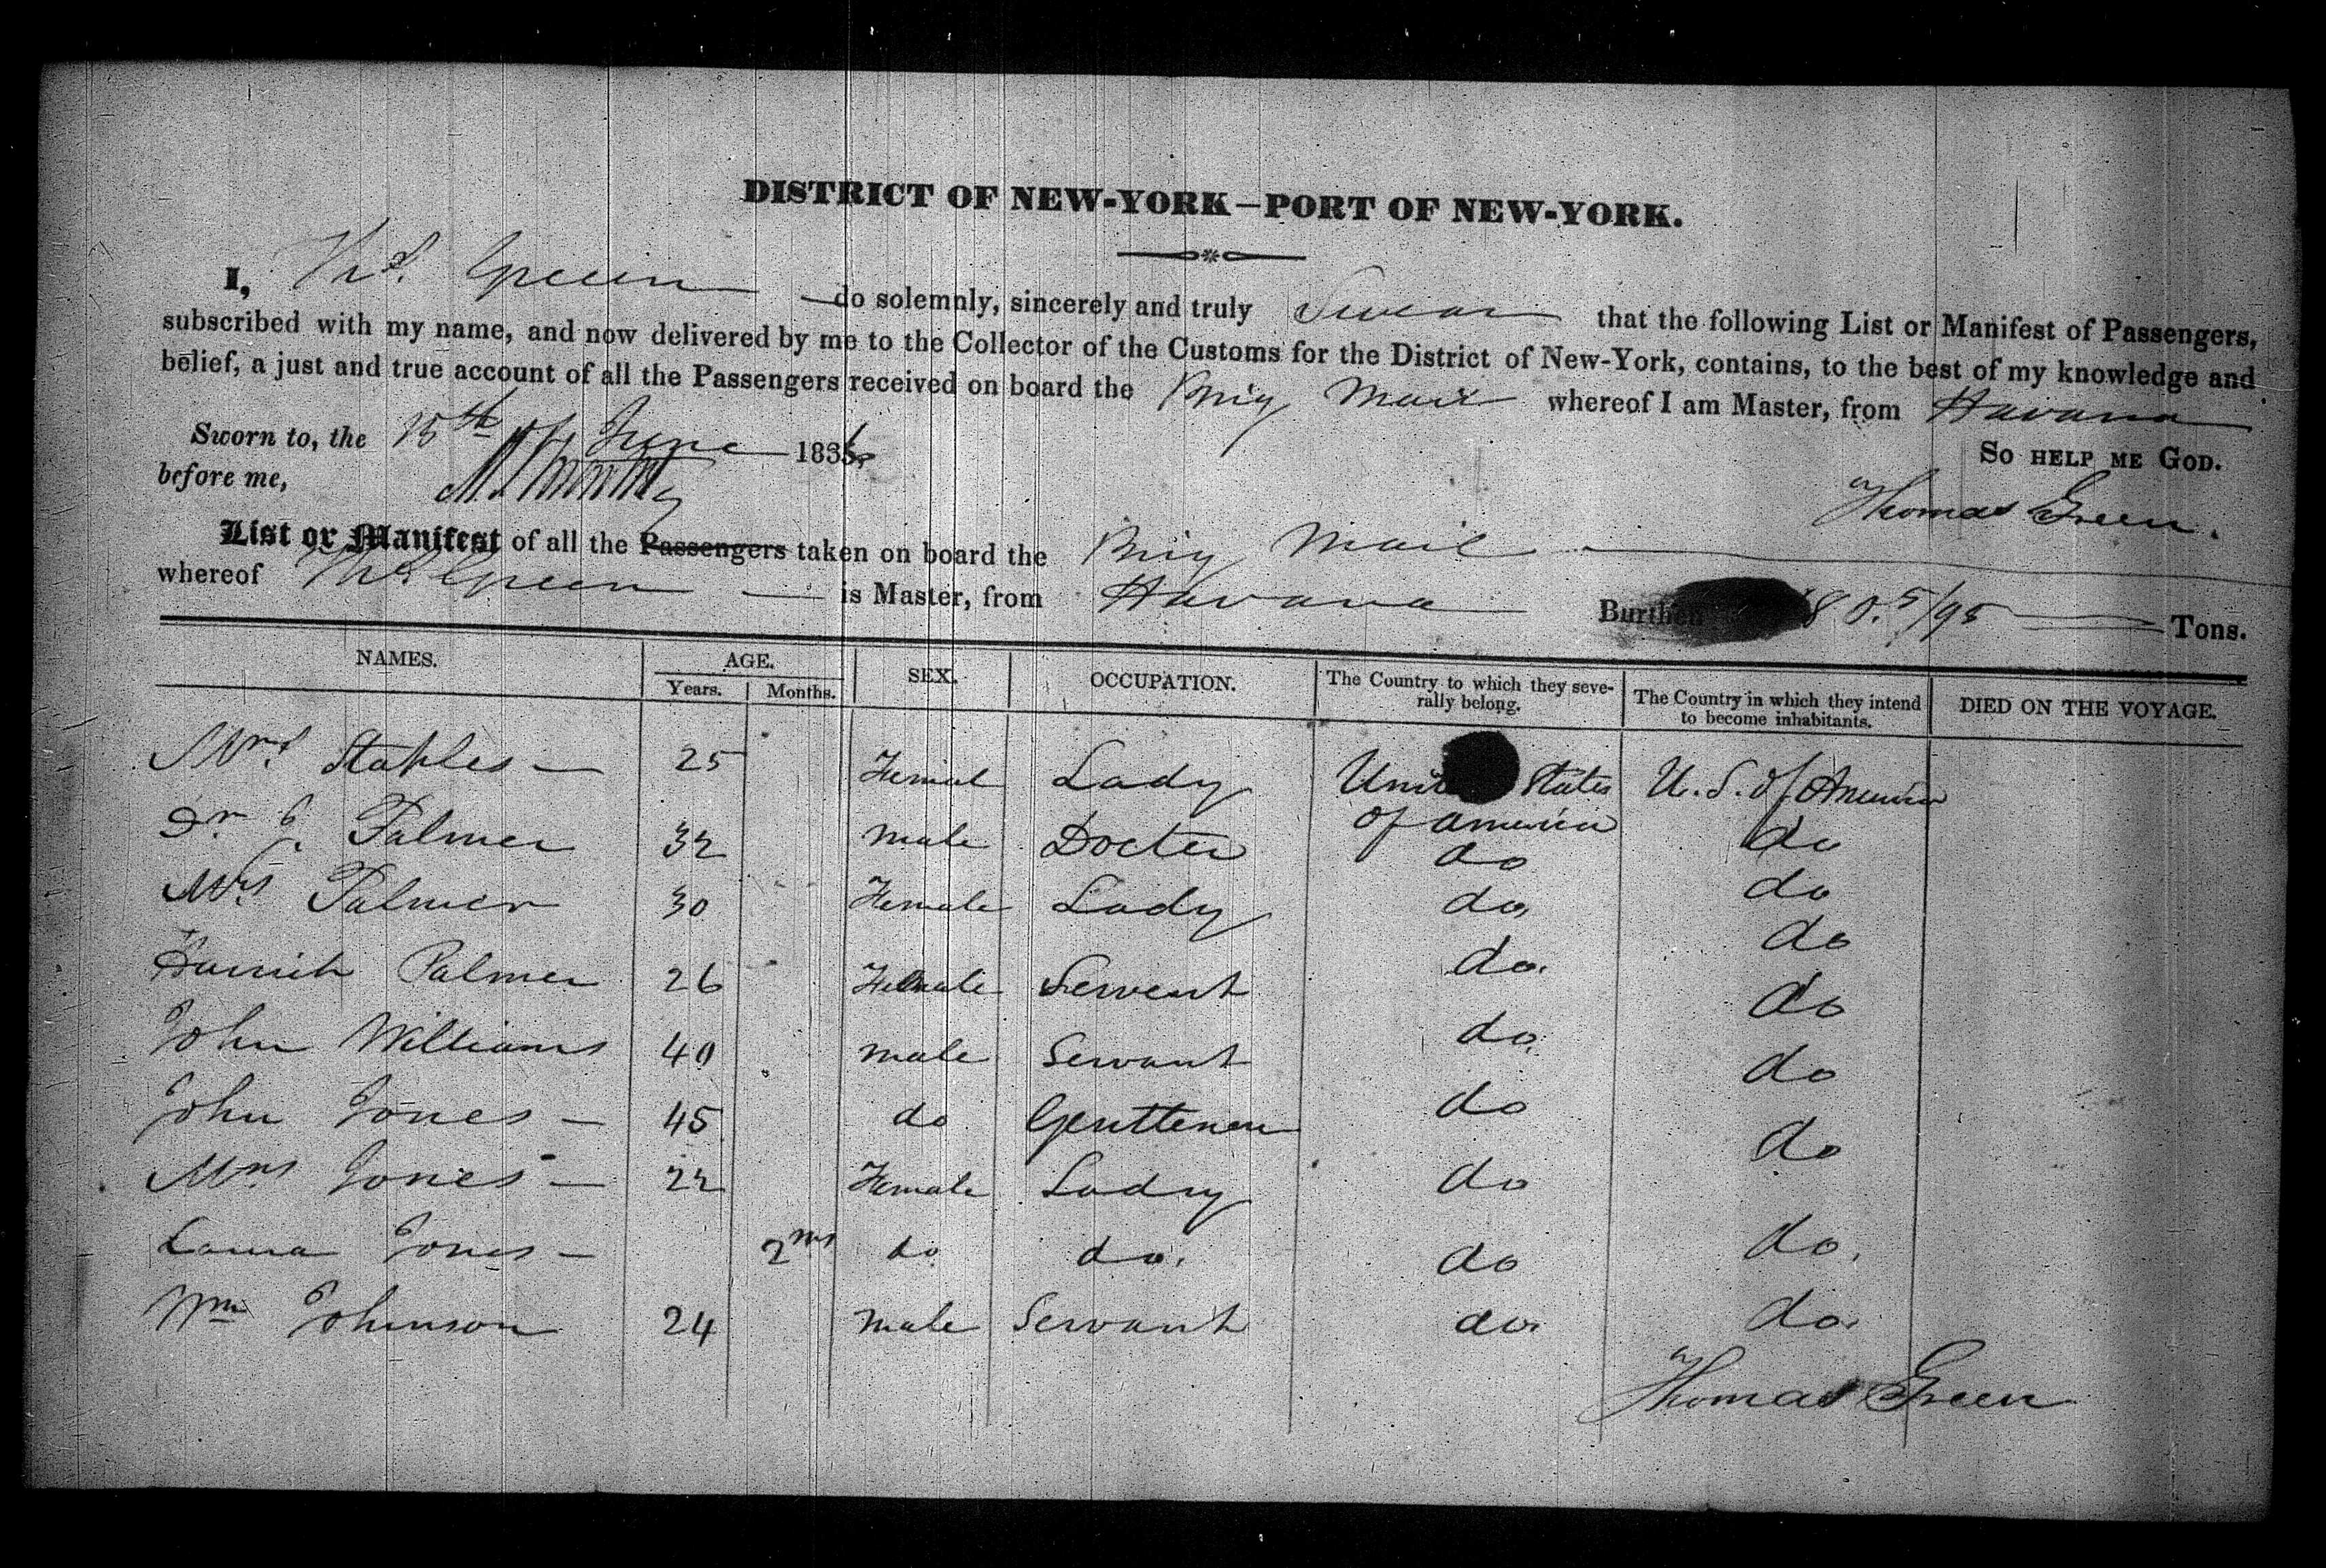 DISTRICT OF NEW-YORK—PORT OF NEW-YORK.
I, Thos. Green do solemnly, sincerely and truly Swear that the following List or Manifest of Passengers,
subscribed with my name, and now delivered by me to the Collector of the Customs for the District of New-York, contains, to the best of my knowledge and
belief, a just and true account of all the Passengers received on board the Brig Mail whereof I am Master, from Havana
Sworn to, the 15th of June 1836 So HELP ME GOD.
before me, Thomas Green.
List or Manifest of all the Passengers taken on board the Brig Mail
whereof Thos Green is Master, from Havana Burthen 80. 5/95 Tons.
NAMES. AGE. SEX. OCCUPATION. The Country to which they seve- The Country in which they intend DIED ON THE VOYAGE.
Years. Months. rally belong. to become inhabitants.
Mrs. Staples — 25 Femal Lady United States U. S. of America
of America
Dr. J. Palmer 32 male Docter do do
Mrs. Palmer 30 Female Lady do do
Palmer 26 Female Servent do. do
John Williams 40 male Servant do. do
John Jones — 45 do Gentleman do do
Mrs Jones — 22 Female Lady do do
Laura Jones — 2ms do do. do do.
Wm Johnson 24 male Servant do. do.
Thomas Green